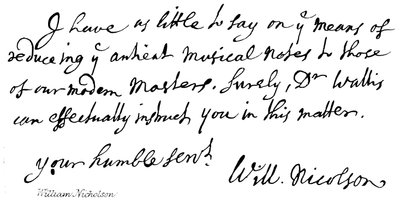 I have as little to say on yᵉ means of
reduceing yᵉ antient Musical Notes to those
of our modern Masters. Surely, Dʳ Wallis
can effectually instruct you in this matter.
your humble servᵗ
Will. Nicolson
William Nicholson